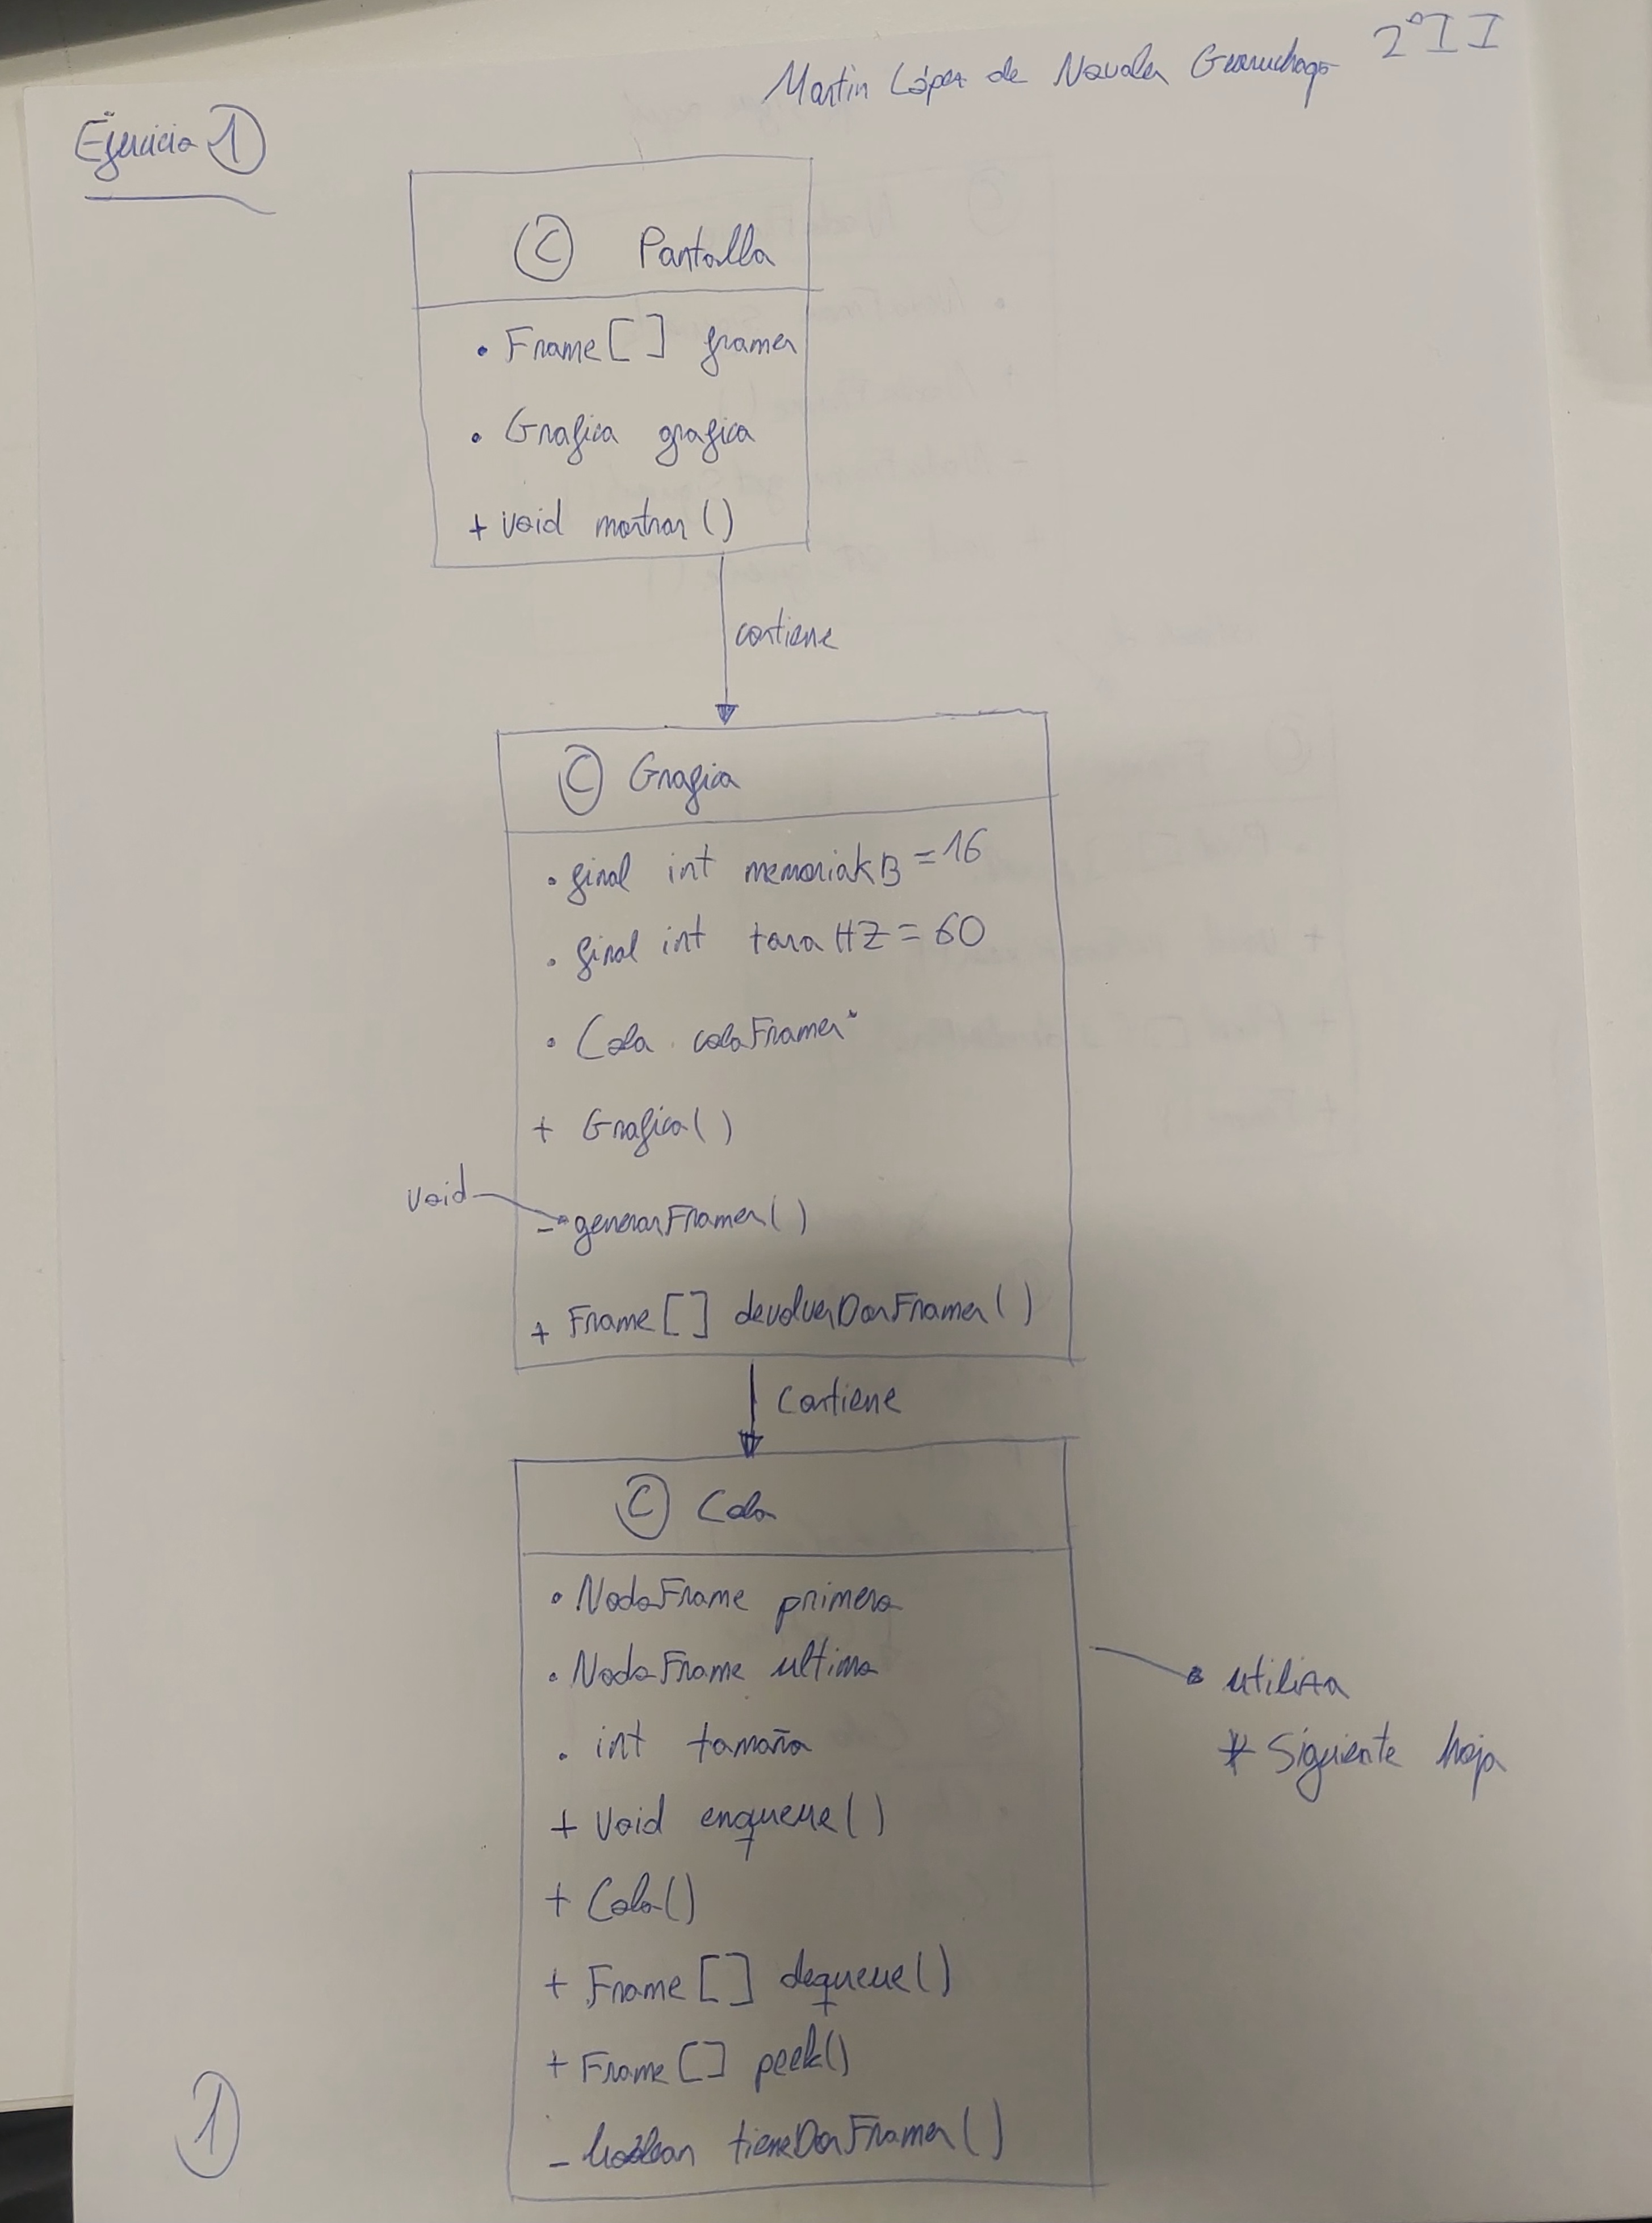 Martin López de 2º II
Ejercicio 1
C Pantalla
• Frame [ ] frames
• Grafica grafica
+ void mostrar ()
contiene
C Grafica
• final int memoriakB = 16
• final int tasa HZ = 60
• Cola colaFrames
+ Grafica ( )
void
- generarFrames ( )
+ Frame [ ] devolverDosFrames ( )
Contiene
C Cola
• NodoFrame primero
• NodoFrame ultimo
• int tamaño
utiliza
* Siguiente hoja
+ void enqueue ( )
+ Cola ()
+ Frame [ ] dequeue ( )
+ Frame [ ] peek ()
- boolean tieneDosFrames ( )
1